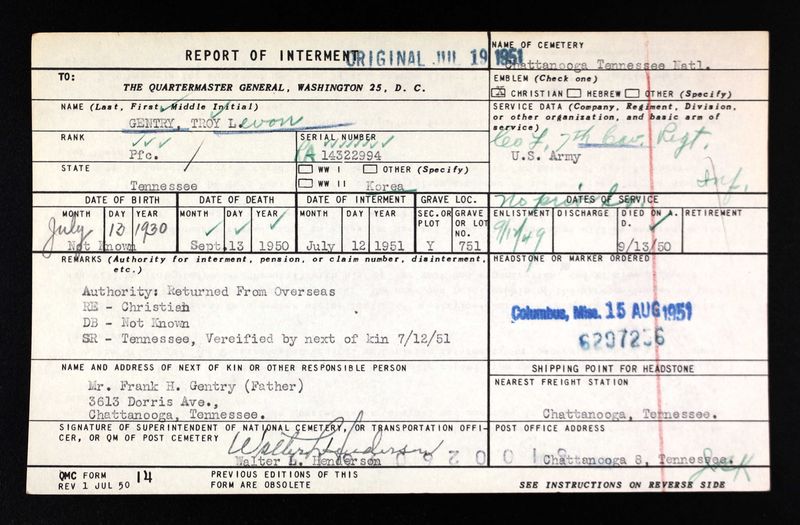 REPORT OF INTERMENT
ORIGINAL JUL 19 1951
NAME OF CEMETERY
Chattanooga Tennessee Natl.
TO:
THE QUARTERMASTER GENERAL, WASHINGTON 25, D. C.
EMBLEM (Check one)
X CHRISTIAN HEBREW OTHER (Specify)
NAME (Last, First, Middle Initial)
GENTRY, TROY Levon
SERVICE DATA (Company, Regiment, Division, or other organization, and basic arm of service)
Co F, 7th Cav. Regt.
U.S. Army
Inf.
RANK
Pfc.
SERIAL NUMBER
RA 14322994
STATE
Tennessee
WW I OTHER (Specify)
WW II Korea
DATE OF BIRTH
MONTH DAY YEAR
July 13 1930
Not Known
DATE OF DEATH
MONTH DAY YEAR
Sept. 13 1950
DATE OF INTERMENT
MONTH DAY YEAR
July 12 1951
GRAVE LOC.
SEC. OR PLOT
GRAVE OR LOT NO.
Y 751
DATES OF SERVICE
No prior
ENLISTMENT DISCHARGE DIED ON A. D. RETIREMENT
9/13/50
REMARKS (Authority for interment, pension, or claim number, disinterment, etc.)
Authority: Returned From Overseas
RE - Christian
DB - Not Known
SR - Tennessee, Vereified by next of kin 7/12/51
HEADSTONE OR MARKER ORDERED
Columbus, Miss. 15 AUG 1951
6297256
NAME AND ADDRESS OF NEXT OF KIN OR OTHER RESPONSIBLE PERSON
Mr. Frank H. Gentry (Father)
3613 Dorris Ave.,
Chattanooga, Tennessee.
SHIPPING POINT FOR HEADSTONE
NEAREST FREIGHT STATION
Chattanooga, Tennessee.
SIGNATURE OF SUPERINTENDENT OF NATIONAL CEMETERY, OR TRANSPORTATION OFFI-
CER, OR QM OF POST CEMETERY
Walter L Henderson
Walter L. Henderson
POST OFFICE ADDRESS
Chattanooga 8, Tennessee.
QMC FORM 14
REV 1 JUL 50
PREVIOUS EDITIONS OF THIS
FORM ARE OBSOLETE
SEE INSTRUCTIONS ON REVERSE SIDE